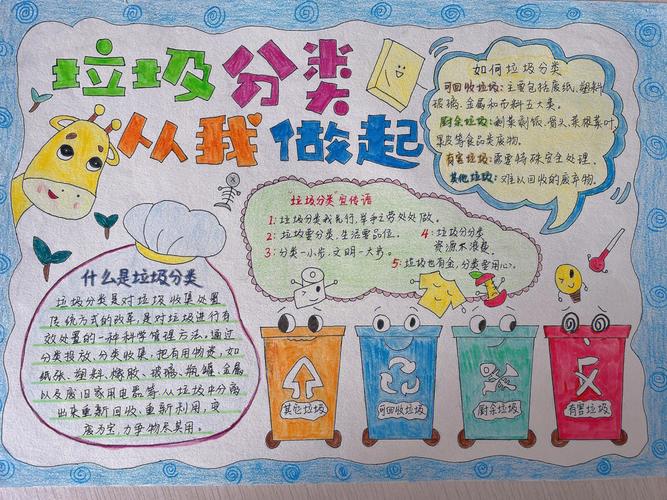 垃圾分类
从我做起
如何垃圾分类
可回收垃圾:主要包括废纸,塑料
玻璃,金属和布料五大类。
厨余垃圾:剩菜剩饭、骨头、菜根菜叶
果皮等食品类废物。
有害垃圾:需要特殊安全处理.
其他垃圾:难以回收的废弃物.
"垃圾分类"宣传语
1:垃圾分类我先行,举手之劳处处做。
2:垃圾要分类,生活要品位。
3:分类一小步,文明一大步。
4:垃圾分分类
资源不浪费.
5:垃圾也有金,分类要用心。
什么是垃圾分类
垃圾分类是对垃圾收集处置
传统方式的改革,是对垃圾进行有
效处置的一种科学管理方法。通过
分类投放、分类收集,把有用物资,如
纸张、塑料、橡胶、玻璃、瓶罐、金属
以及废旧家用电器等,从垃圾中分离
出来重新回收、重新利用,变
废为宝,力争物尽其用。
其他垃圾
可回收垃圾
厨余垃圾
有害垃圾